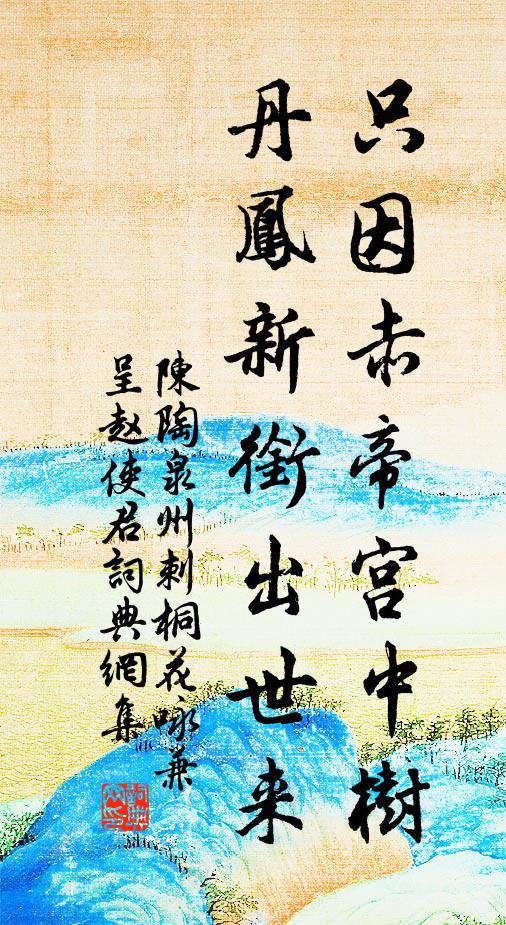 只因赤帝宮中樹
丹鳳新銜出世来
陳陶泉州刺桐花咏兼
呈赵使君詞典網集